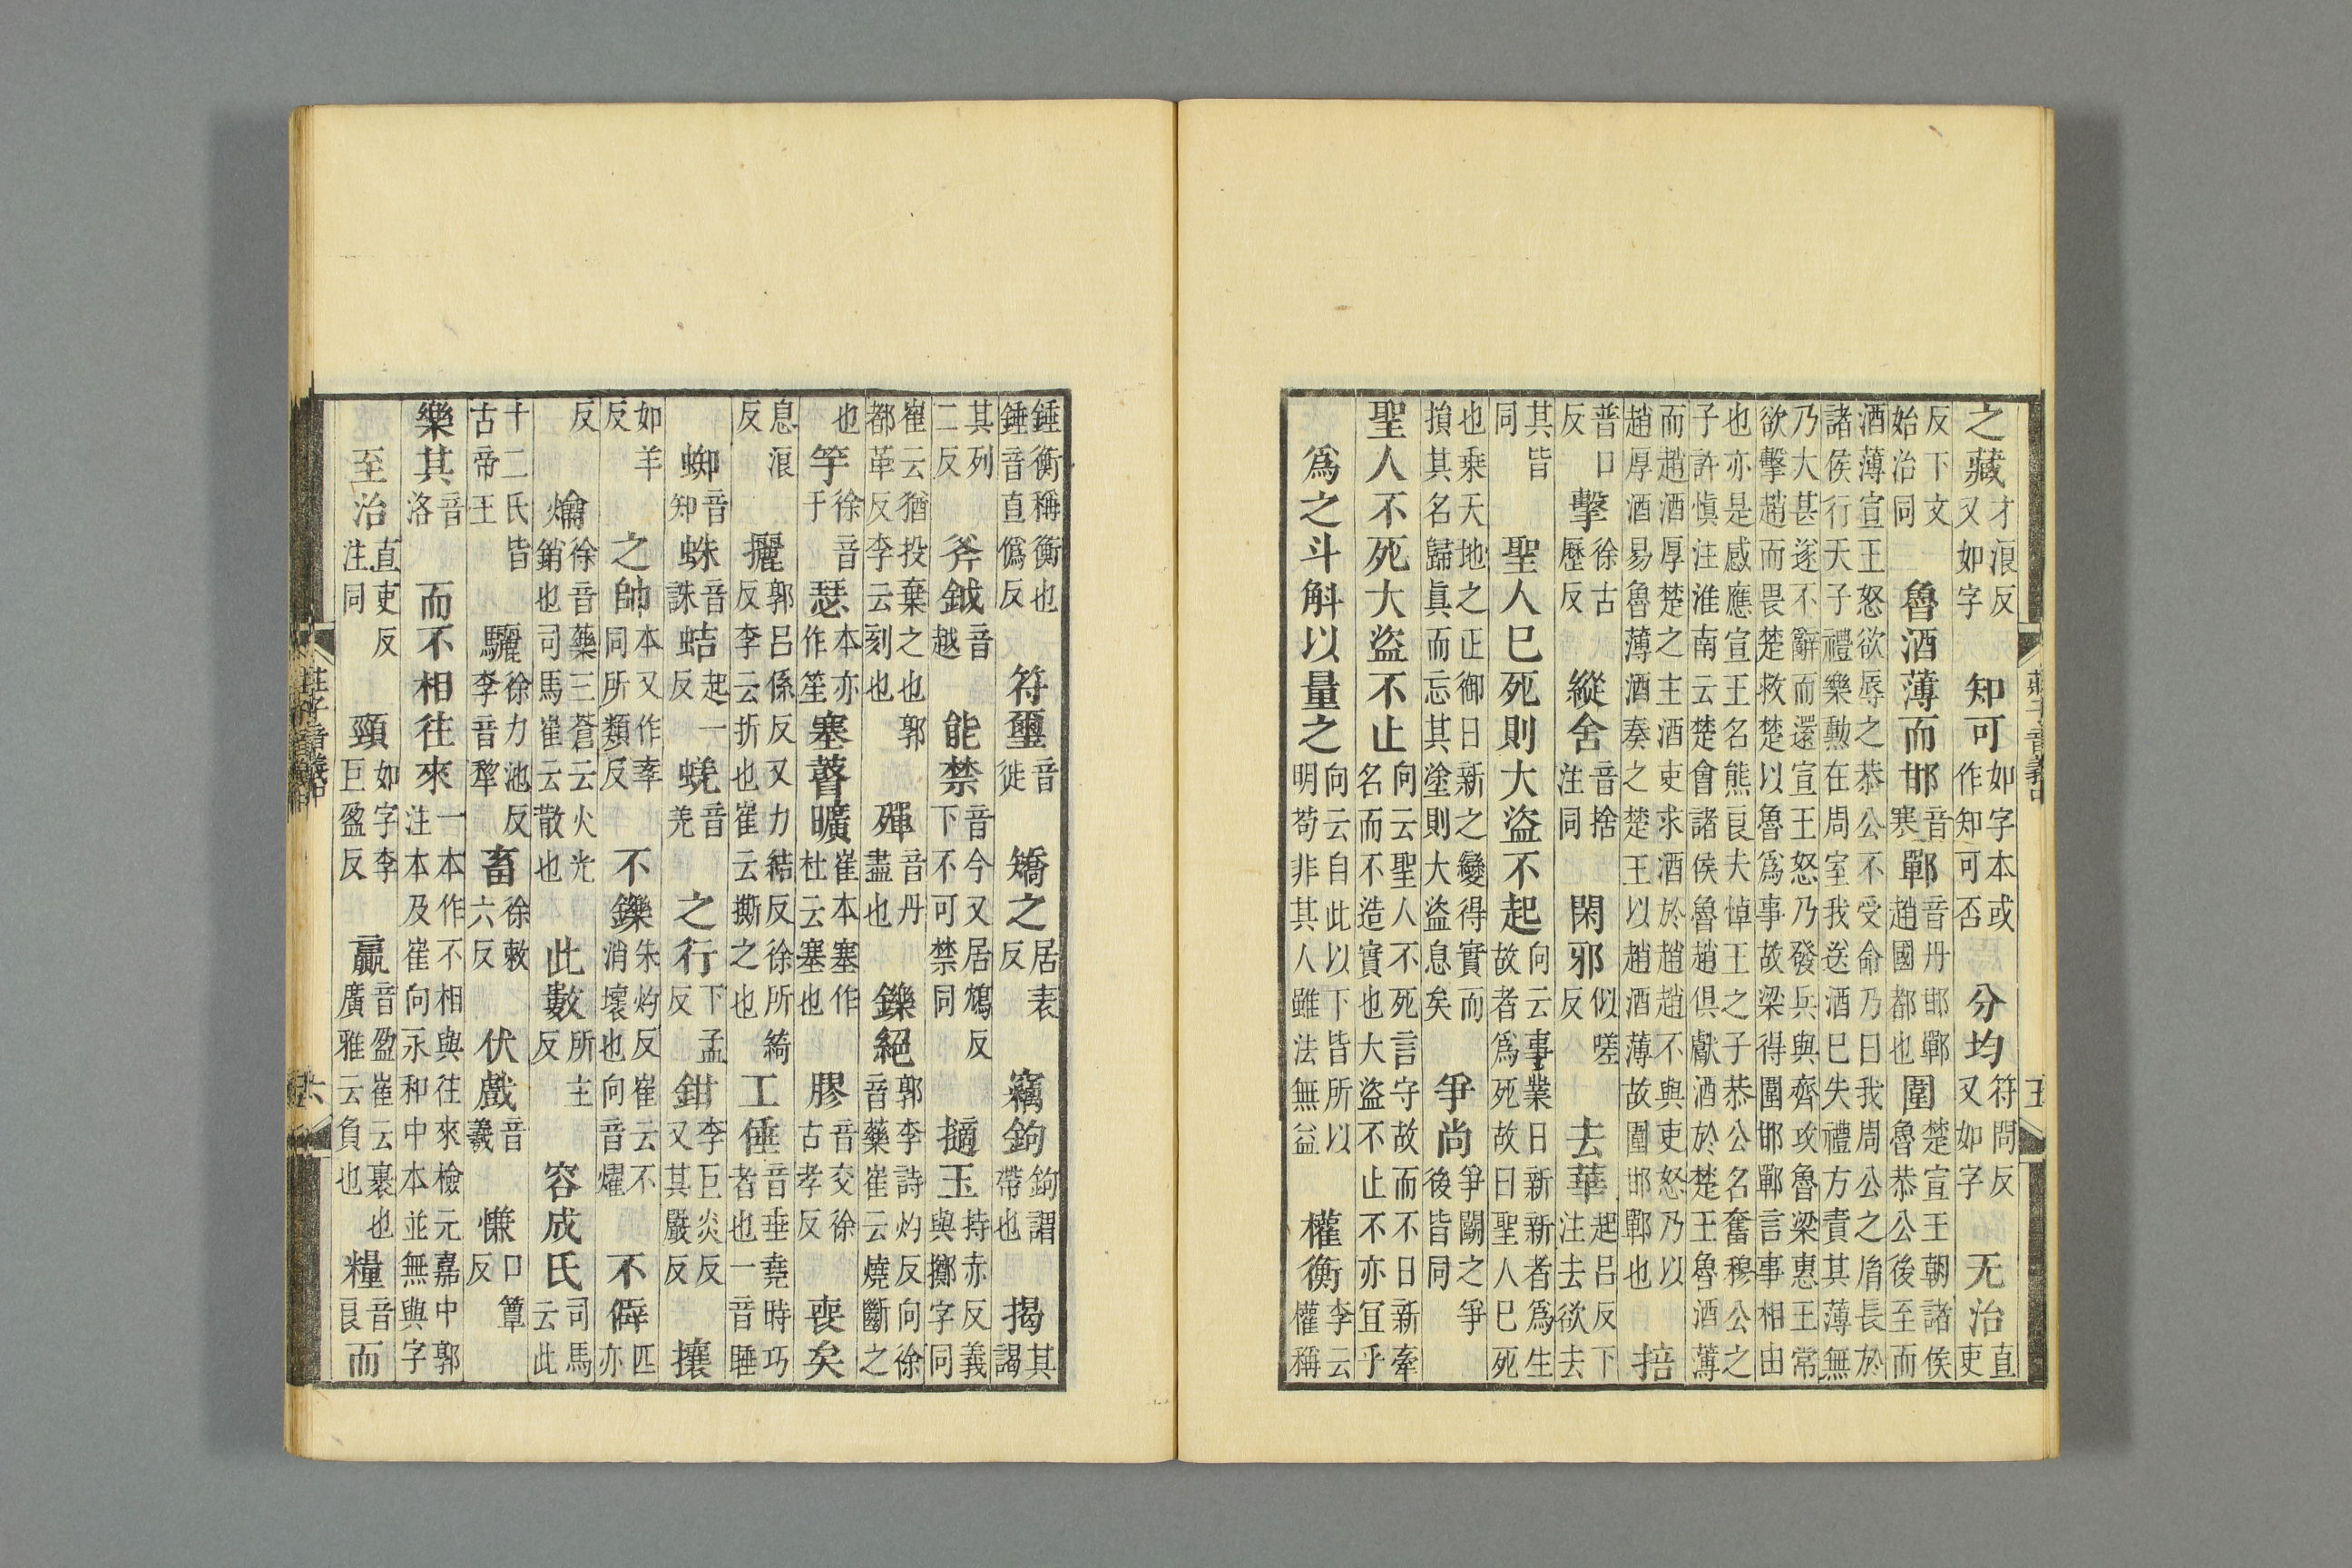 莊子音義中 五
之藏才浪反又如字知可如字本或作知可否分均符問反又如字无治直吏
反下文始治同魯酒薄而邯音寒鄲音丹邯鄲趙國都也圍楚宣王朝諸侯魯恭公後至而
酒薄宣王怒欲辱之恭公不受命乃曰我周公之胄長於諸侯行天子禮樂勳在周室我送酒巳失禮方責其薄無
乃大甚遂不辭而還宣王怒乃發兵與齊攻魯梁惠王常欲擊趙而畏楚救楚以魯爲事故梁得圍邯鄲言事相由
也亦是感應宣王名熊良夫悼王之子恭公名奮穆公之子許慎注淮南云楚會諸侯魯趙俱獻酒於楚王魯酒薄
而趙酒厚楚之主酒吏求酒於趙趙不與吏怒乃以趙厚酒易魯薄酒奏之楚王以趙酒薄故圍邯鄲也掊
普口反擊徐古歷反縱舍音捨注同閑邪似嗟反去華起呂反下注去欲去
其皆同聖人巳死則大盜不起向云事業日新新者爲生故者爲死故曰聖人巳死
也乘天地之正御日新之變得實而損其名歸眞而忘其塗則大盜息矣爭尚爭鬭之爭後皆同
聖人不死大盜不止向云聖人不死言守故而不日新牽名而不造實也大盜不止不亦宜乎
爲之斗斛以量之向云自此以下皆所以明苟非其人雖法無益權衡李云權稱
錘衡稱衡也錘音直僞反符璽音徙矯之居表反竊鉤鉤謂帶也揭其謁
其列二反斧鉞音越能禁音今又居鴆反下不可禁同擿玉持赤反義與擲字同
崔云猶投棄之也郭都革反李云刻也殫音丹盡也鑠絕郭李詩灼反向徐音藥崔云燒斷之
也竽徐音于瑟本亦作笙塞瞽曠崔本塞作杜云塞也膠音交徐古孝反喪矣
息浪反攦郭呂係反又力結反徐所綺反李云折也崔云撕之也工倕音垂堯時巧者也一音睡
蜘音知蛛音誅蛣起一反蜣音羌之行下孟反鉗李巨炎反又其嚴反攘
如羊反之帥本又作率同所類反不鑠朱灼反崔云不消壞也向音燿不僻匹亦
反爚徐音藥三蒼云火光銷也司馬崔云散也此數所主反容成氏司馬云此
十二氏皆古帝王驪徐力池反李音犂畜徐敕六反伏戲音羲慊口簟反
樂其音洛而不相往來一本作不相與往來檢元嘉中郭注本及崔向永和中本並無與字
至治直吏反注同頸如字李巨盈反贏音盈崔云裹也廣雅云負也糧音良而
莊子音義中 六